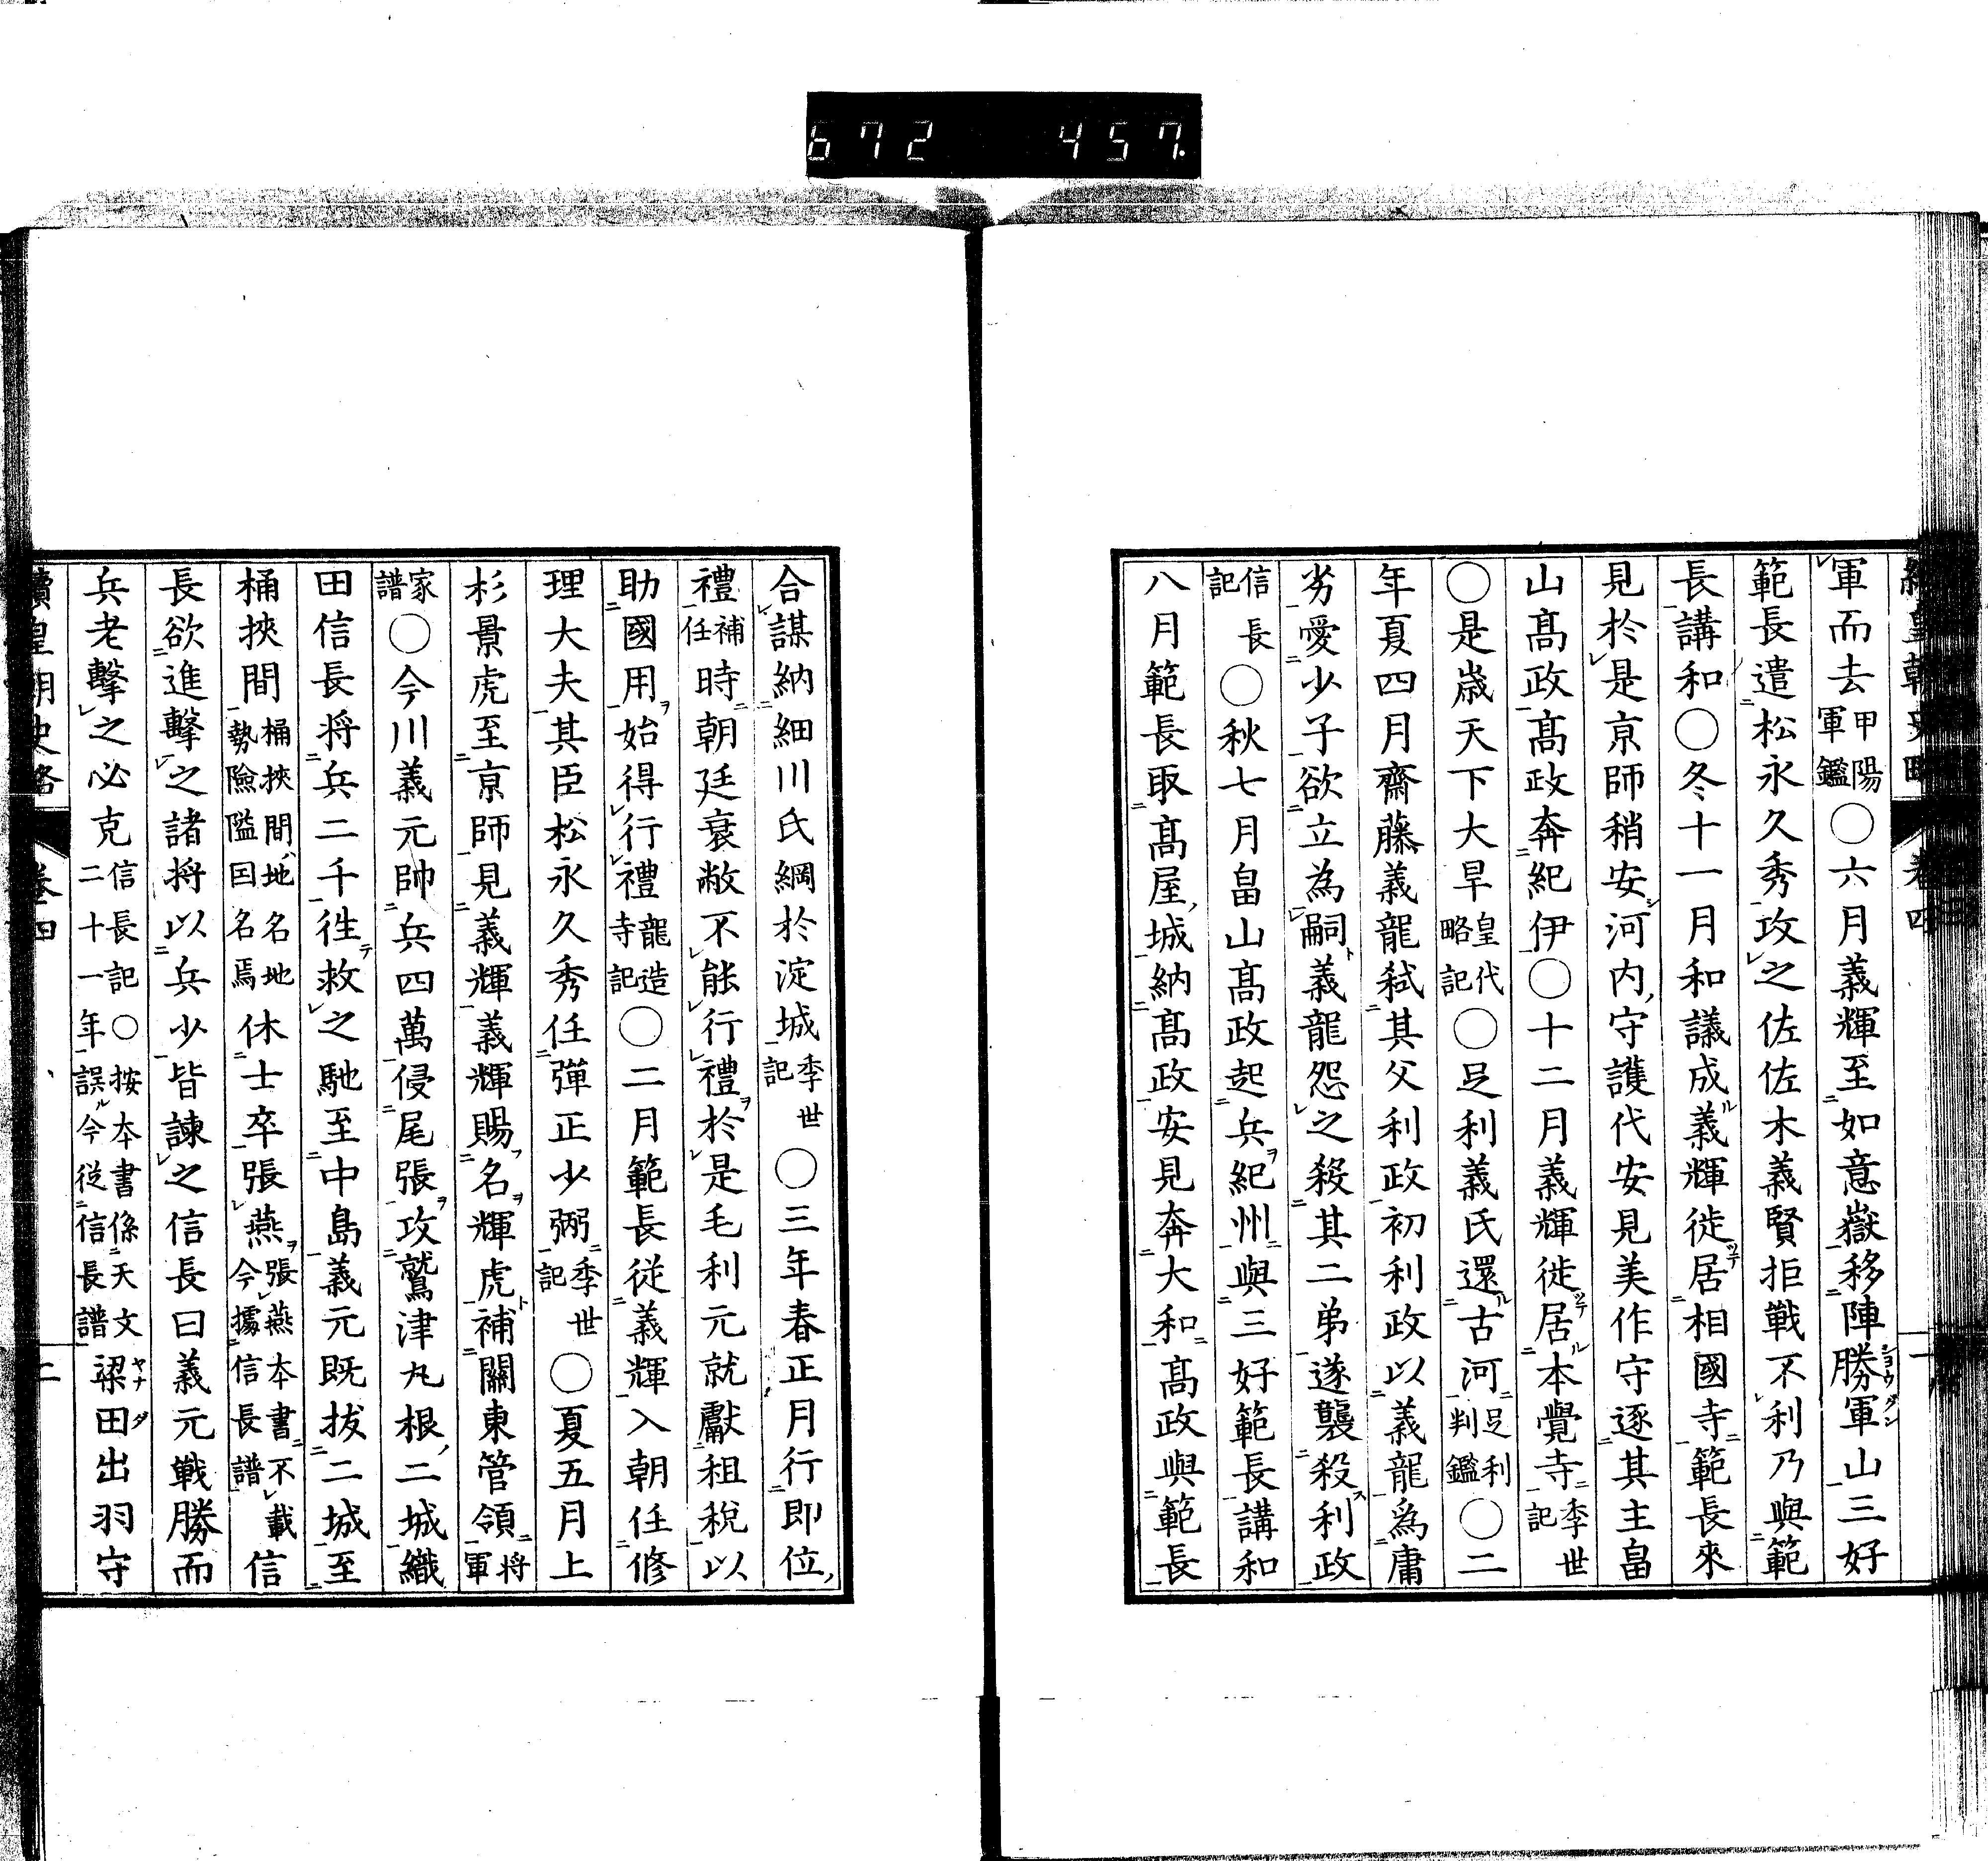 672 457.
續皇朝史略 卷四
軍而去甲陽軍鑑〇六月義輝至如意嶽移陣勝軍山三好
範長遣松永久秀攻之佐佐木義賢拒戰不利乃與範
長講和〇冬十一月和議成義輝徙居相國寺範長來
見於是京師稍安河内守護代安見美作守逐其主畠
山髙政髙政奔紀伊〇十二月義輝徙居本覺寺季世記
〇是歳天下大旱皇代略記〇足利義氏還古河足利判鑑〇二
年夏四月齋藤義龍弒其父利政初利政以義龍爲庸
劣愛少子欲立為嗣義龍怨之殺其二弟遂襲殺利政
信長記〇秋七月畠山髙政起兵紀州與三好範長講和
八月範長取髙屋城納髙政安見奔大和髙政與範長
合謀納細川氏綱於淀城季世記〇三年春正月行即位
禮補任時朝廷衰敝不能行禮於是毛利元就獻租稅以
助國用始得行禮龍造寺記〇二月範長從義輝入朝任修
理大夫其臣松永久秀任彈正少弼季世記〇夏五月上
杉景虎至京師見義輝義輝賜名輝虎補關東管領将軍
家譜〇今川義元帥兵四萬侵尾張攻鷲津丸根二城織
田信長将兵二千往救之馳至中島義元既拔二城至
桶挾間桶挾間地名地勢險隘因名焉休士卒張燕張燕本書不載今據信長譜信
長欲進擊之諸将以兵少皆諫之信長曰義元戰勝而
兵老擊之必克信長記〇按本書係天文二十一年誤今從信長譜梁田出羽守
續皇朝史略 卷四 二